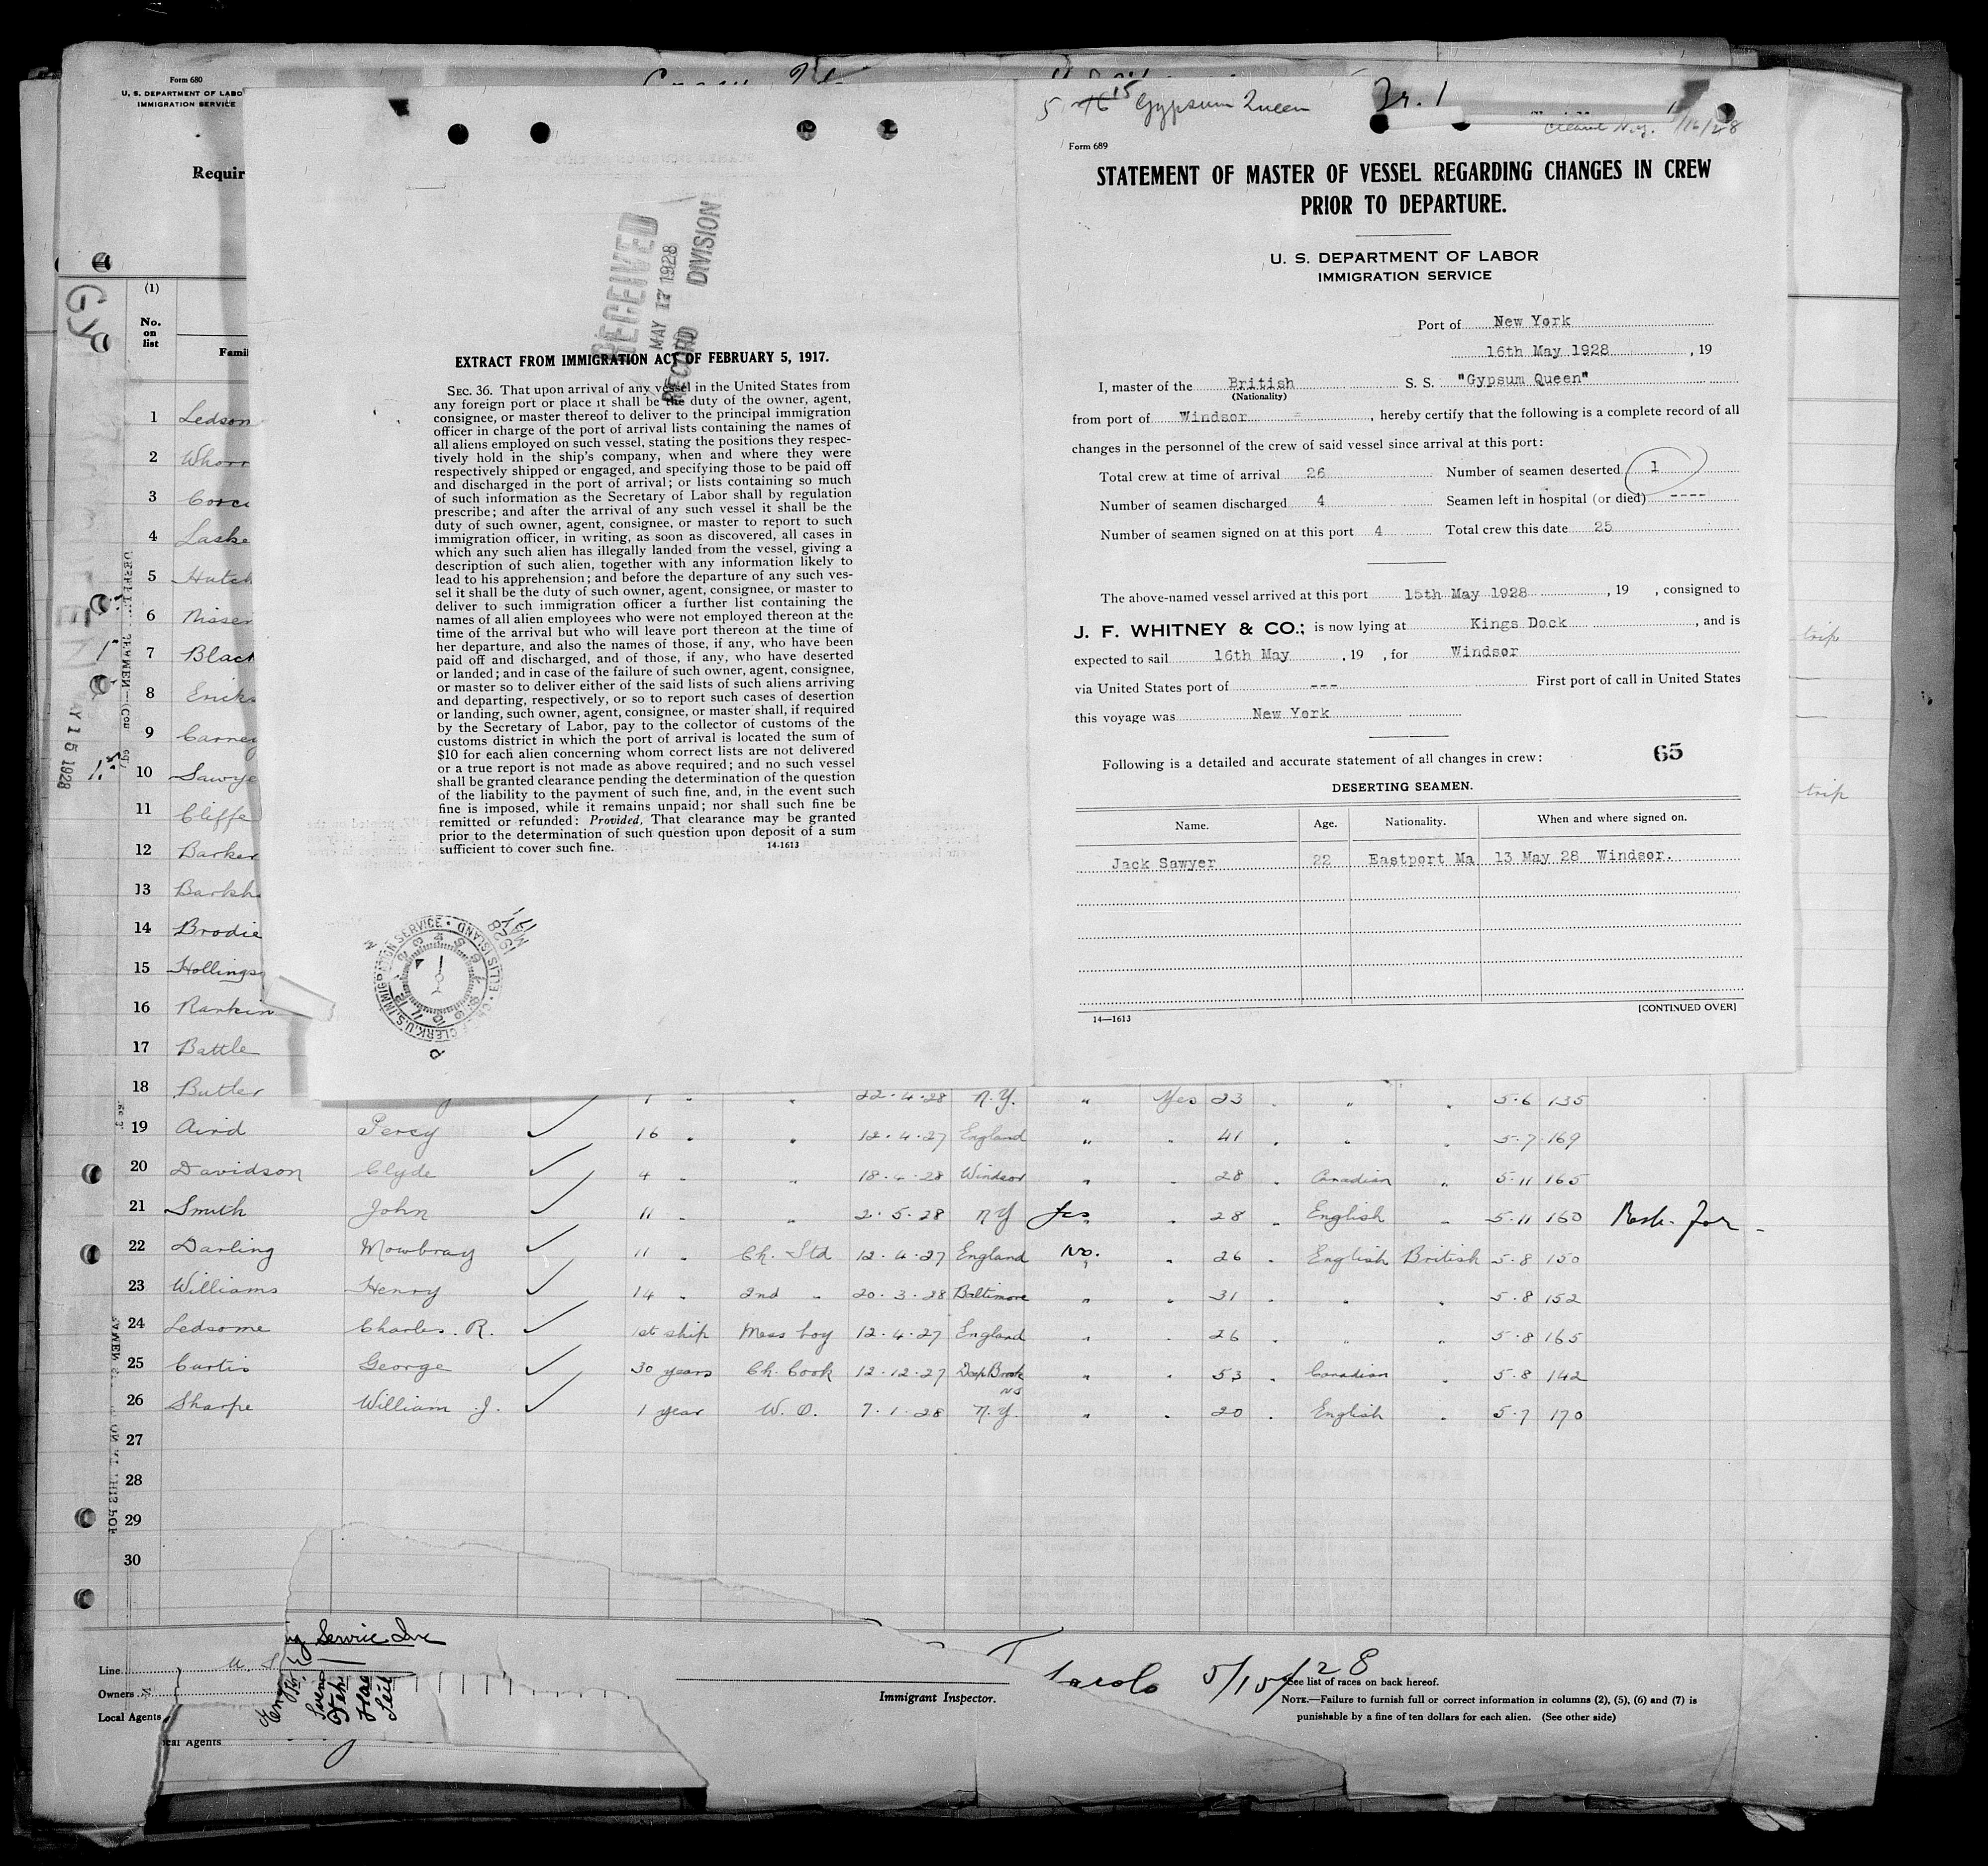 Form 680
U. S. DEPARTMENT OF LABO
IMMIGRATION SERVICE
Requir
(1)
No.
on
list
Famil
1 Ledson
2 Whorr
3 Corc
4 Laske
5 Hutch
6 Nisser
7 Black
8 Ericks
9 Carney
10 Sawye
11 Cliffe
12 Barker
13 Barkh
14 Brodie
15 Hollings
16 Rankin
17 Battle
18 Butler
AY 15 1928
RECEIVED
MAY 17 1928
RECORD DIVISION
EXTRACT FROM IMMIGRATION ACT OF FEBRUARY 5, 1917.
SEC. 36. That upon arrival of any vessel in the United States from
any foreign port or place it shall be the duty of the owner, agent,
consignee, or master thereof to deliver to the principal immigration
officer in charge of the port of arrival lists containing the names of
all aliens employed on such vessel, stating the positions they respec-
tively hold in the ship's company, when and where they were
respectively shipped or engaged, and specifying those to be paid off
and discharged in the port of arrival; or lists containing so much
of such information as the Secretary of Labor shall by regulation
prescribe; and after the arrival of any such vessel it shall be the
duty of such owner, agent, consignee, or master to report to such
immigration officer, in writing, as soon as discovered, all cases in
which any such alien has illegally landed from the vessel, giving a
description of such alien, together with any information likely to
lead to his apprehension; and before the departure of any such ves-
sel it shall be the duty of such owner, agent, consignee, or master to
deliver to such immigration officer a further list containing the
names of all alien employees who were not employed thereon at the
time of the arrival but who will leave port thereon at the time of
her departure, and also the names of those, if any, who have been
paid off and discharged, and of those, if any, who have deserted
or landed; and in case of the failure of such owner, agent, consignee,
or master so to deliver either of the said lists of such aliens arriving
and departing, respectively, or so to report such cases of desertion
or landing, such owner, agent, consignee, or master shall, if required
by the Secretary of Labor, pay to the collector of customs of the
customs district in which the port of arrival is located the sum of
$10 for each alien concerning whom correct lists are not delivered
or a true report is not made as above required; and no such vessel
shall be granted clearance pending the determination of the question
of the liability to the payment of such fine, and, in the event such
fine is imposed, while it remains unpaid; nor shall such fine be
remitted or refunded: Provided, That clearance may be granted
prior to the determination of such question upon deposit of a sum
sufficient to cover such fine.
14-1613
5 15 Gypsum Queen
Form 689
STATEMENT OF MASTER OF VESSEL REGARDING CHANGES IN CREW
PRIOR TO DEPARTURE.
U. S. DEPARTMENT OF LABOR
IMMIGRATION SERVICE
Port of New York
16th May 1928 , 19
I, master of the British S. S. "Gypsum Queen"
(Nationality)
from port of Windsor , hereby certify that the following is a complete record of all
changes in the personnel of the crew of said vessel since arrival at this port:
Total crew at time of arrival 26 Number of seamen deserted 1
Number of seamen discharged 4 Seamen left in hospital (or died) ----
Number of seamen signed on at this port 4 Total crew this date 25
The above-named vessel arrived at this port 15th May 1928 , 19 , consigned to
J. F. WHITNEY & CO.; is now lying at Kings Dock , and is
expected to sail 16th May , 19 , for Windsor
via United States port of --- First port of call in United States
this voyage was New York
65
Following is a detailed and accurate statement of all changes in crew:
DESERTING SEAMEN.
Name. Age. Nationality. When and where signed on.
Jack Sawyer 22 Eastport Ma 13 May 28 Windsor.
14—1613 [CONTINUED OVER]
trip
trip
22.4.28 N.Y. " Yes 23 " " " 5.6 135
19 Aird Percy 16 " " 12.4.27 England " " 41 " " " 5.7 169
20 Davidson Clyde 4 " " 18.4.28 Windsor " " 28 " Canadian " 5.11 165
21 Smith John 11 " " 2.5.28 N Y Yes " 28 " English " 5.11 160
22 Darling Mowbray 11 " Ch. Std 12.4.27 England No. " 26 " English British 5.8 150
23 Williams Henry 14 " 2nd " 20.3.28 Baltimore " " 31 " " " 5.8 152
24 Ledsome Charles. R. 1st ship Mess boy 12.4.27 England " " 26 " " " 5.8 165
25 Curtis George 30 years Ch. Cook 12.12.27 Deep Brook NS " " 53 " Canadian " 5.8 142
26 Sharpe William J. 1 year W. O. 7.1.28 N.Y. " " 20 " English " 5.7 170
27
28
29
30
Service Inc
Line
Owners
Local Agents
cal Agents
Immigrant Inspector.
5/15/28
See list of races on back hereof.
NOTE.—Failure to furnish full or correct information in columns (2), (5), (6) and (7) is
punishable by a fine of ten dollars for each alien. (See other side)